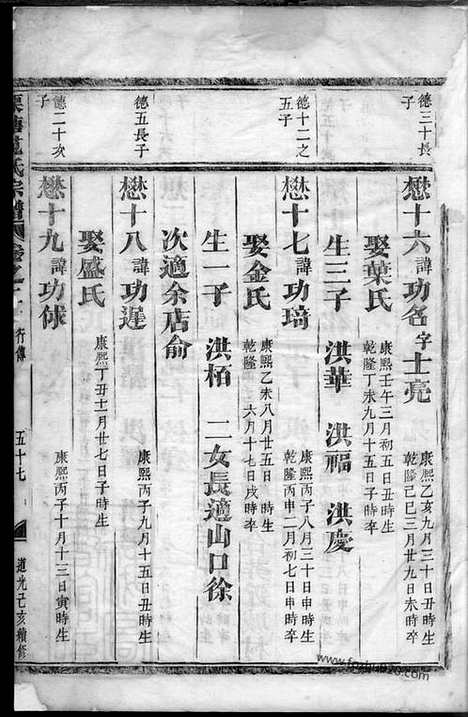 德三十長
子
懋十六諱功名字士亮
康熙乙亥九月三十日丑時生
乾隆己巳三月廿九日未時卒
娶葉氏
康熙壬午三月初五日丑時生
乾隆丁未九月十五日子時卒
生三子 洪華 洪福 洪慶
德十二之
五子
懋十七諱功琦
康熙丙子八月三十日申時生
乾隆丙申二月初七日申時卒
娶金氏
康熙乙未八月廿五日 時生
乾隆 六月十七日戌時卒
生一子 洪栢 二女長適山口徐
次適余店俞
德五長子
懋十八諱功遲
康熙丙子九月十五日丑時生
娶盛氏
康熙丁丑十一月廿七日子時生
德二十次
子
懋十九諱功俅
康熙丙子十月十三日寅時生
氏宗譜
卷之
行傳
五十七
道光己亥續修